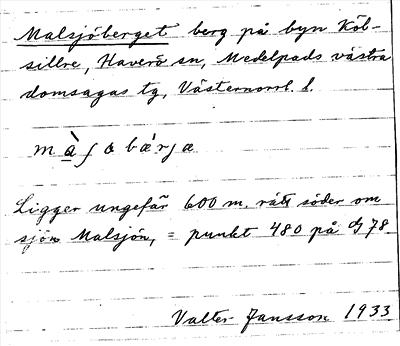 Malsjöberget berg på byn Köl-
sillre, Haverö sn, Medelpads västra
domsagas tg, Västernorrl. l.
màʃobǽrja
Ligger ungefär 600 m. rätt söder om
sjön Malsjön, = punkt 480 på G 78
Valter Jansson 1933